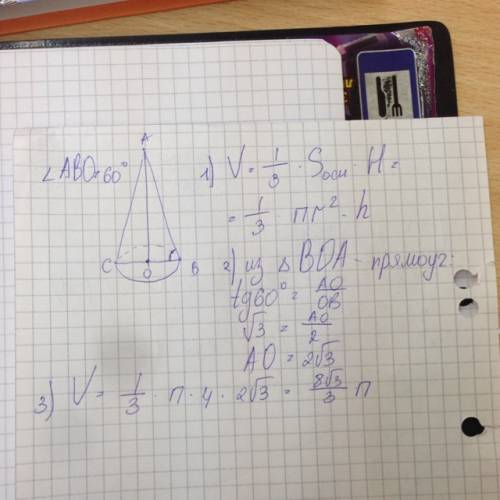 A
∠ABO=60°
C
O
r
B
1) V = 1/3 · Sосн · H =
= 1/3 · πr² · h
2) из Δ BOA - прямоуг:
tg60° = AO/OB
√3 = AO/2
AO = 2√3
3) V = 1/3 · π · 4 · 2√3 = 8√3/3 π